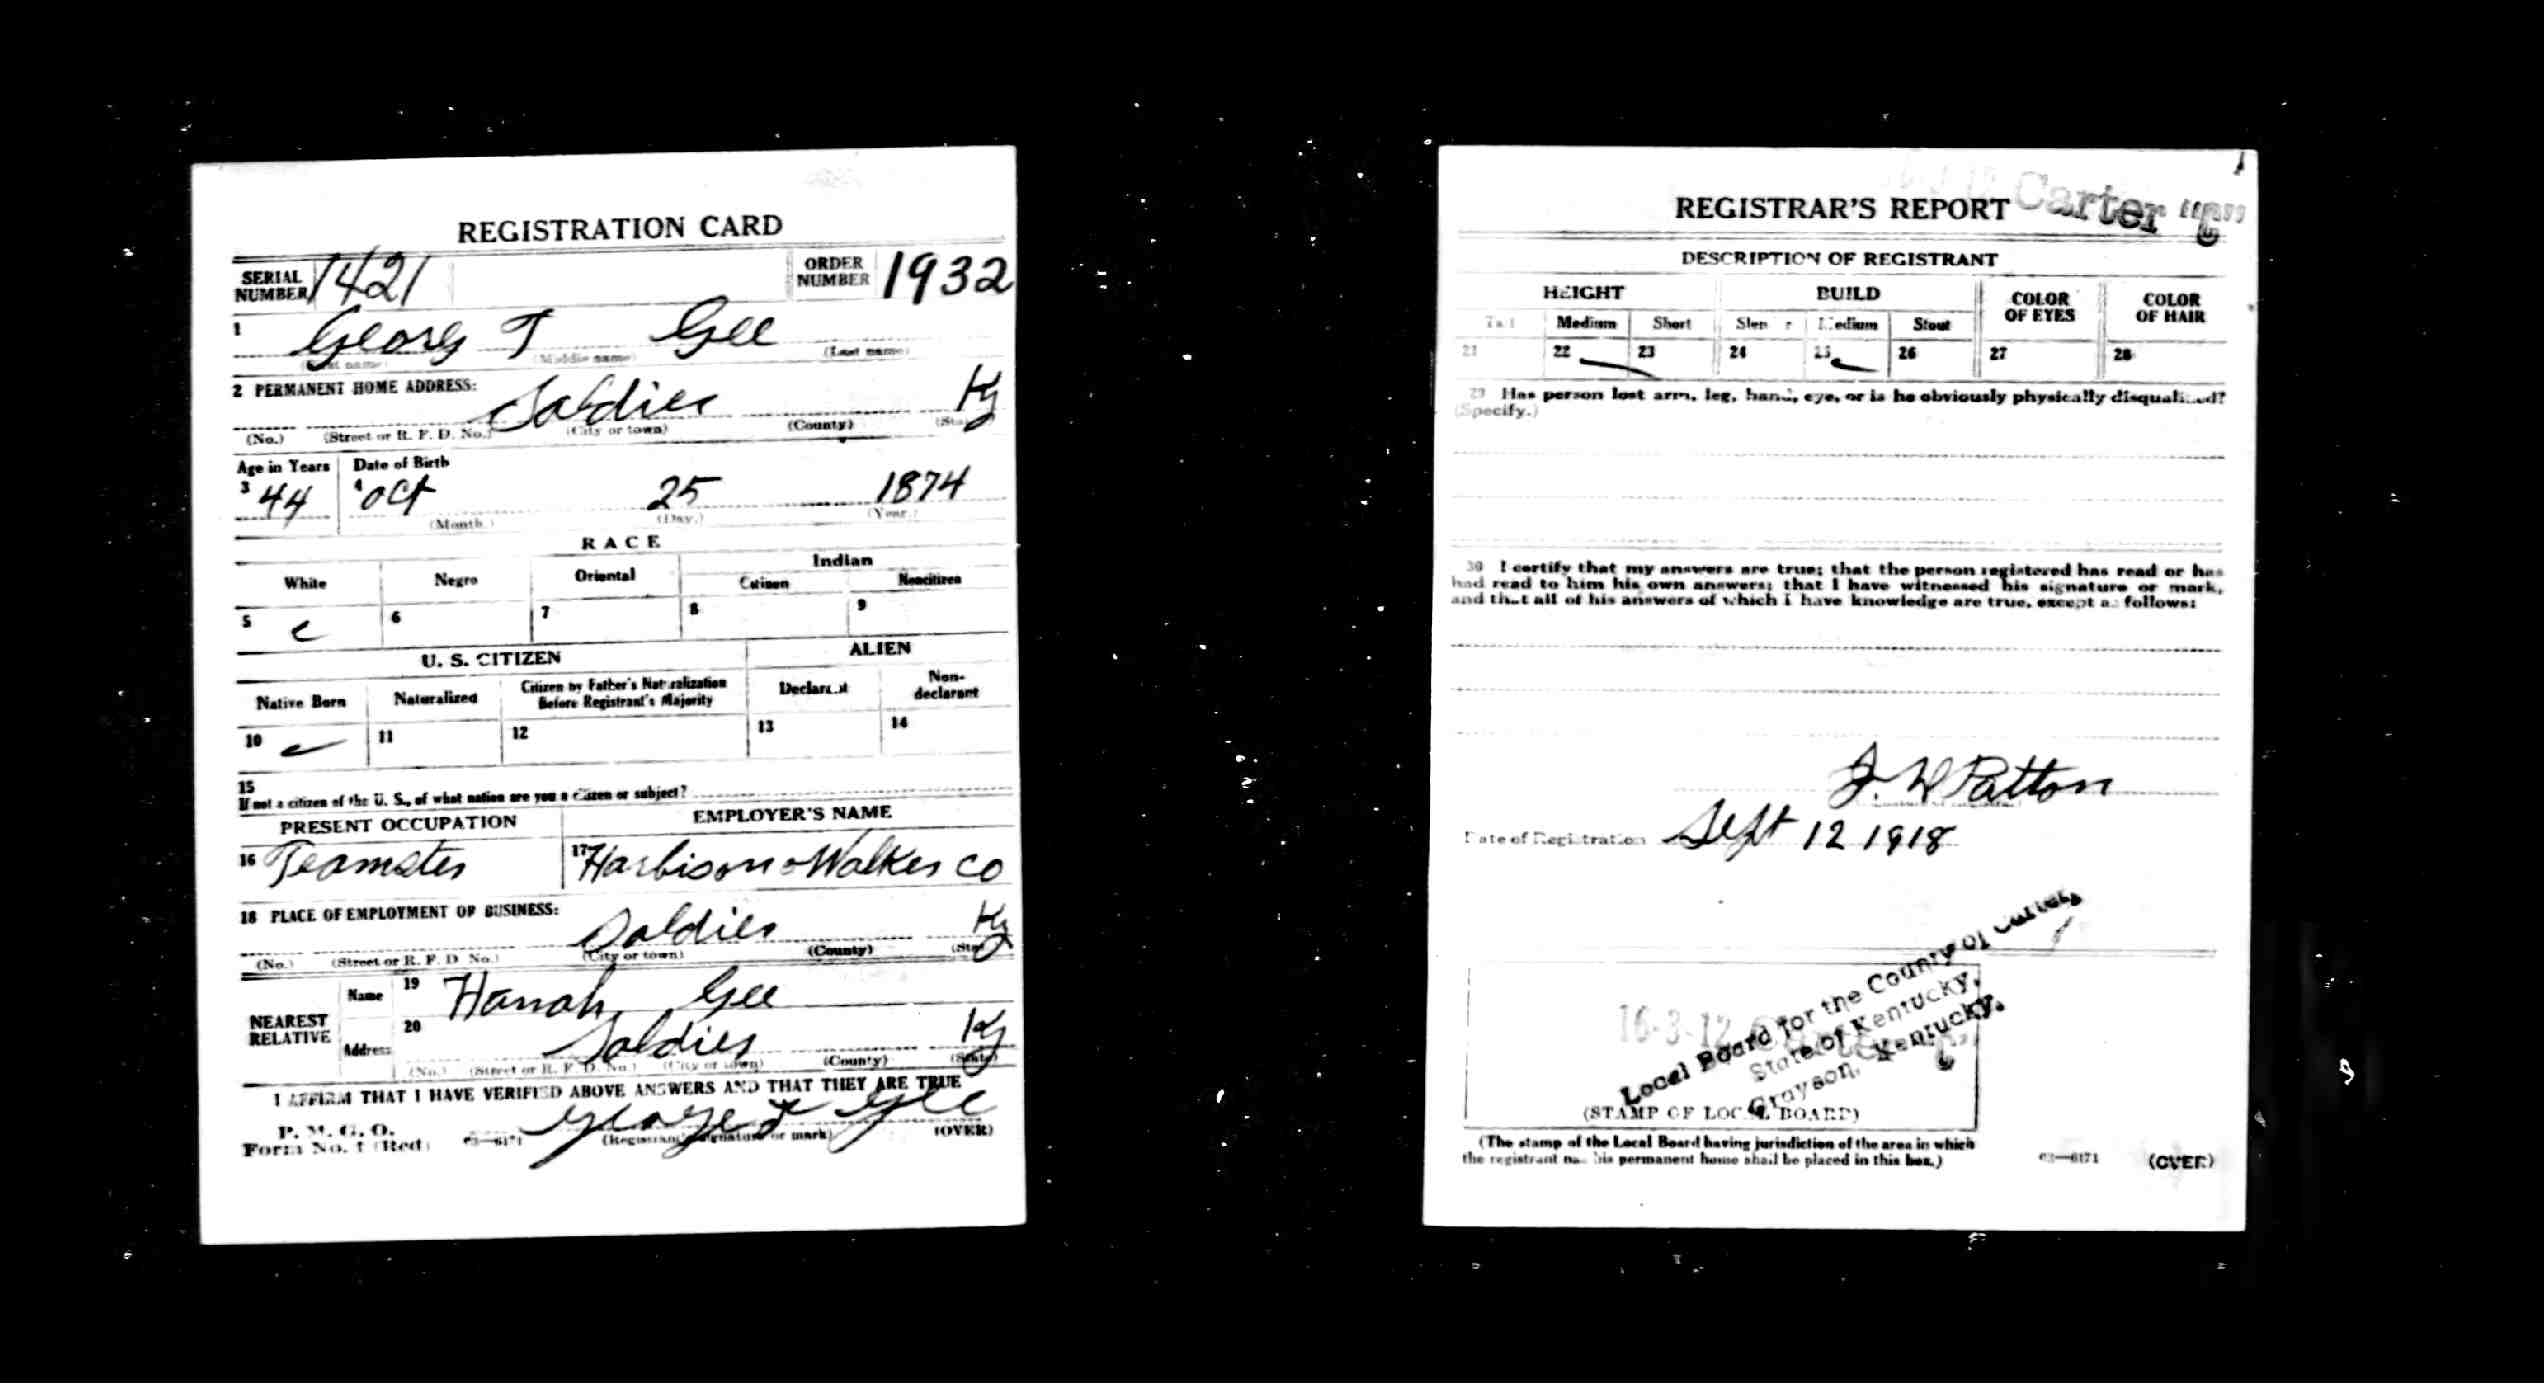 REGISTRATION CARD
SERIAL NUMBER 1421 ORDER NUMBER 1932
1 Georg T Gee
(Middle name) (Last name)
2 PERMANENT HOME ADDRESS:
Soldier Ky
(No.) (Street or R. F. D. No.) (City or town) (County)
Age in Years Date of Birth
3 44 4 Oct 25 1874
(Month.) (Day.) (Year.)
RACE
White Negro Oriental Indian
Citizen Noncitizen
5 6 7 8 9
U. S. CITIZEN ALIEN
Native Born Naturalized Citizen by Father's Naturalization Before Registrant's Majority Declarant Non-declarant
10 11 12 13 14
15
If not a citizen of the U. S., of what nation are you a citizen or subject?
PRESENT OCCUPATION EMPLOYER'S NAME
16 Teamster 17 Harbison-Walker Co
18 PLACE OF EMPLOYMENT OR BUSINESS:
Soldier Ky
(No.) (Street or R. F. D. No.) (City or town) (County)
NEAREST RELATIVE Name 19 Hanah Gee
Address 20 Soldier Ky
(No.) (Street or R. F. D. No.) (City or town) (County) (State)
I AFFIRM THAT I HAVE VERIFIED ABOVE ANSWERS AND THAT THEY ARE TRUE
George T Gee
P. M. G. O.
Form No. 1 (Red) 03—6171 (Registrant's signature or mark) (OVER)
REGISTRAR'S REPORT Carter "C"
DESCRIPTION OF REGISTRANT
HEIGHT BUILD COLOR OF EYES COLOR OF HAIR
Tall Medium Short Slender Medium Stout
21 22 23 24 25 26 27 28
29 Has person lost arm, leg, hand, eye, or is he obviously physically disqualified?
(Specify.)
30 I certify that my answers are true; that the person registered has read or has
had read to him his own answers; that I have witnessed his signature or mark,
and that all of his answers of which I have knowledge are true, except as follows:
J. W Patton
Date of Registration Sept 12 1918
Local Board for the County of Carter,
State of Kentucky,
Grayson, Kentucky.
16-3-12
(STAMP OF LOCAL BOARD)
(The stamp of the Local Board having jurisdiction of the area in which
the registrant has his permanent home shall be placed in this box.)
03—6171 (OVER)